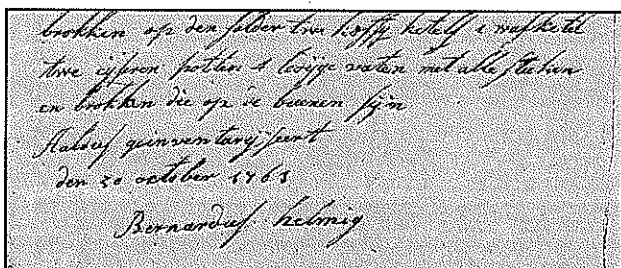 brokken op den solder twe koffy ketels 1 wasketel
twe ijseren potten 1 ledige vaten met alle stucken
en brokken die op de buenen sijn
Aldus geinventarijseert
den 20 october 1761
Bernardus helmig